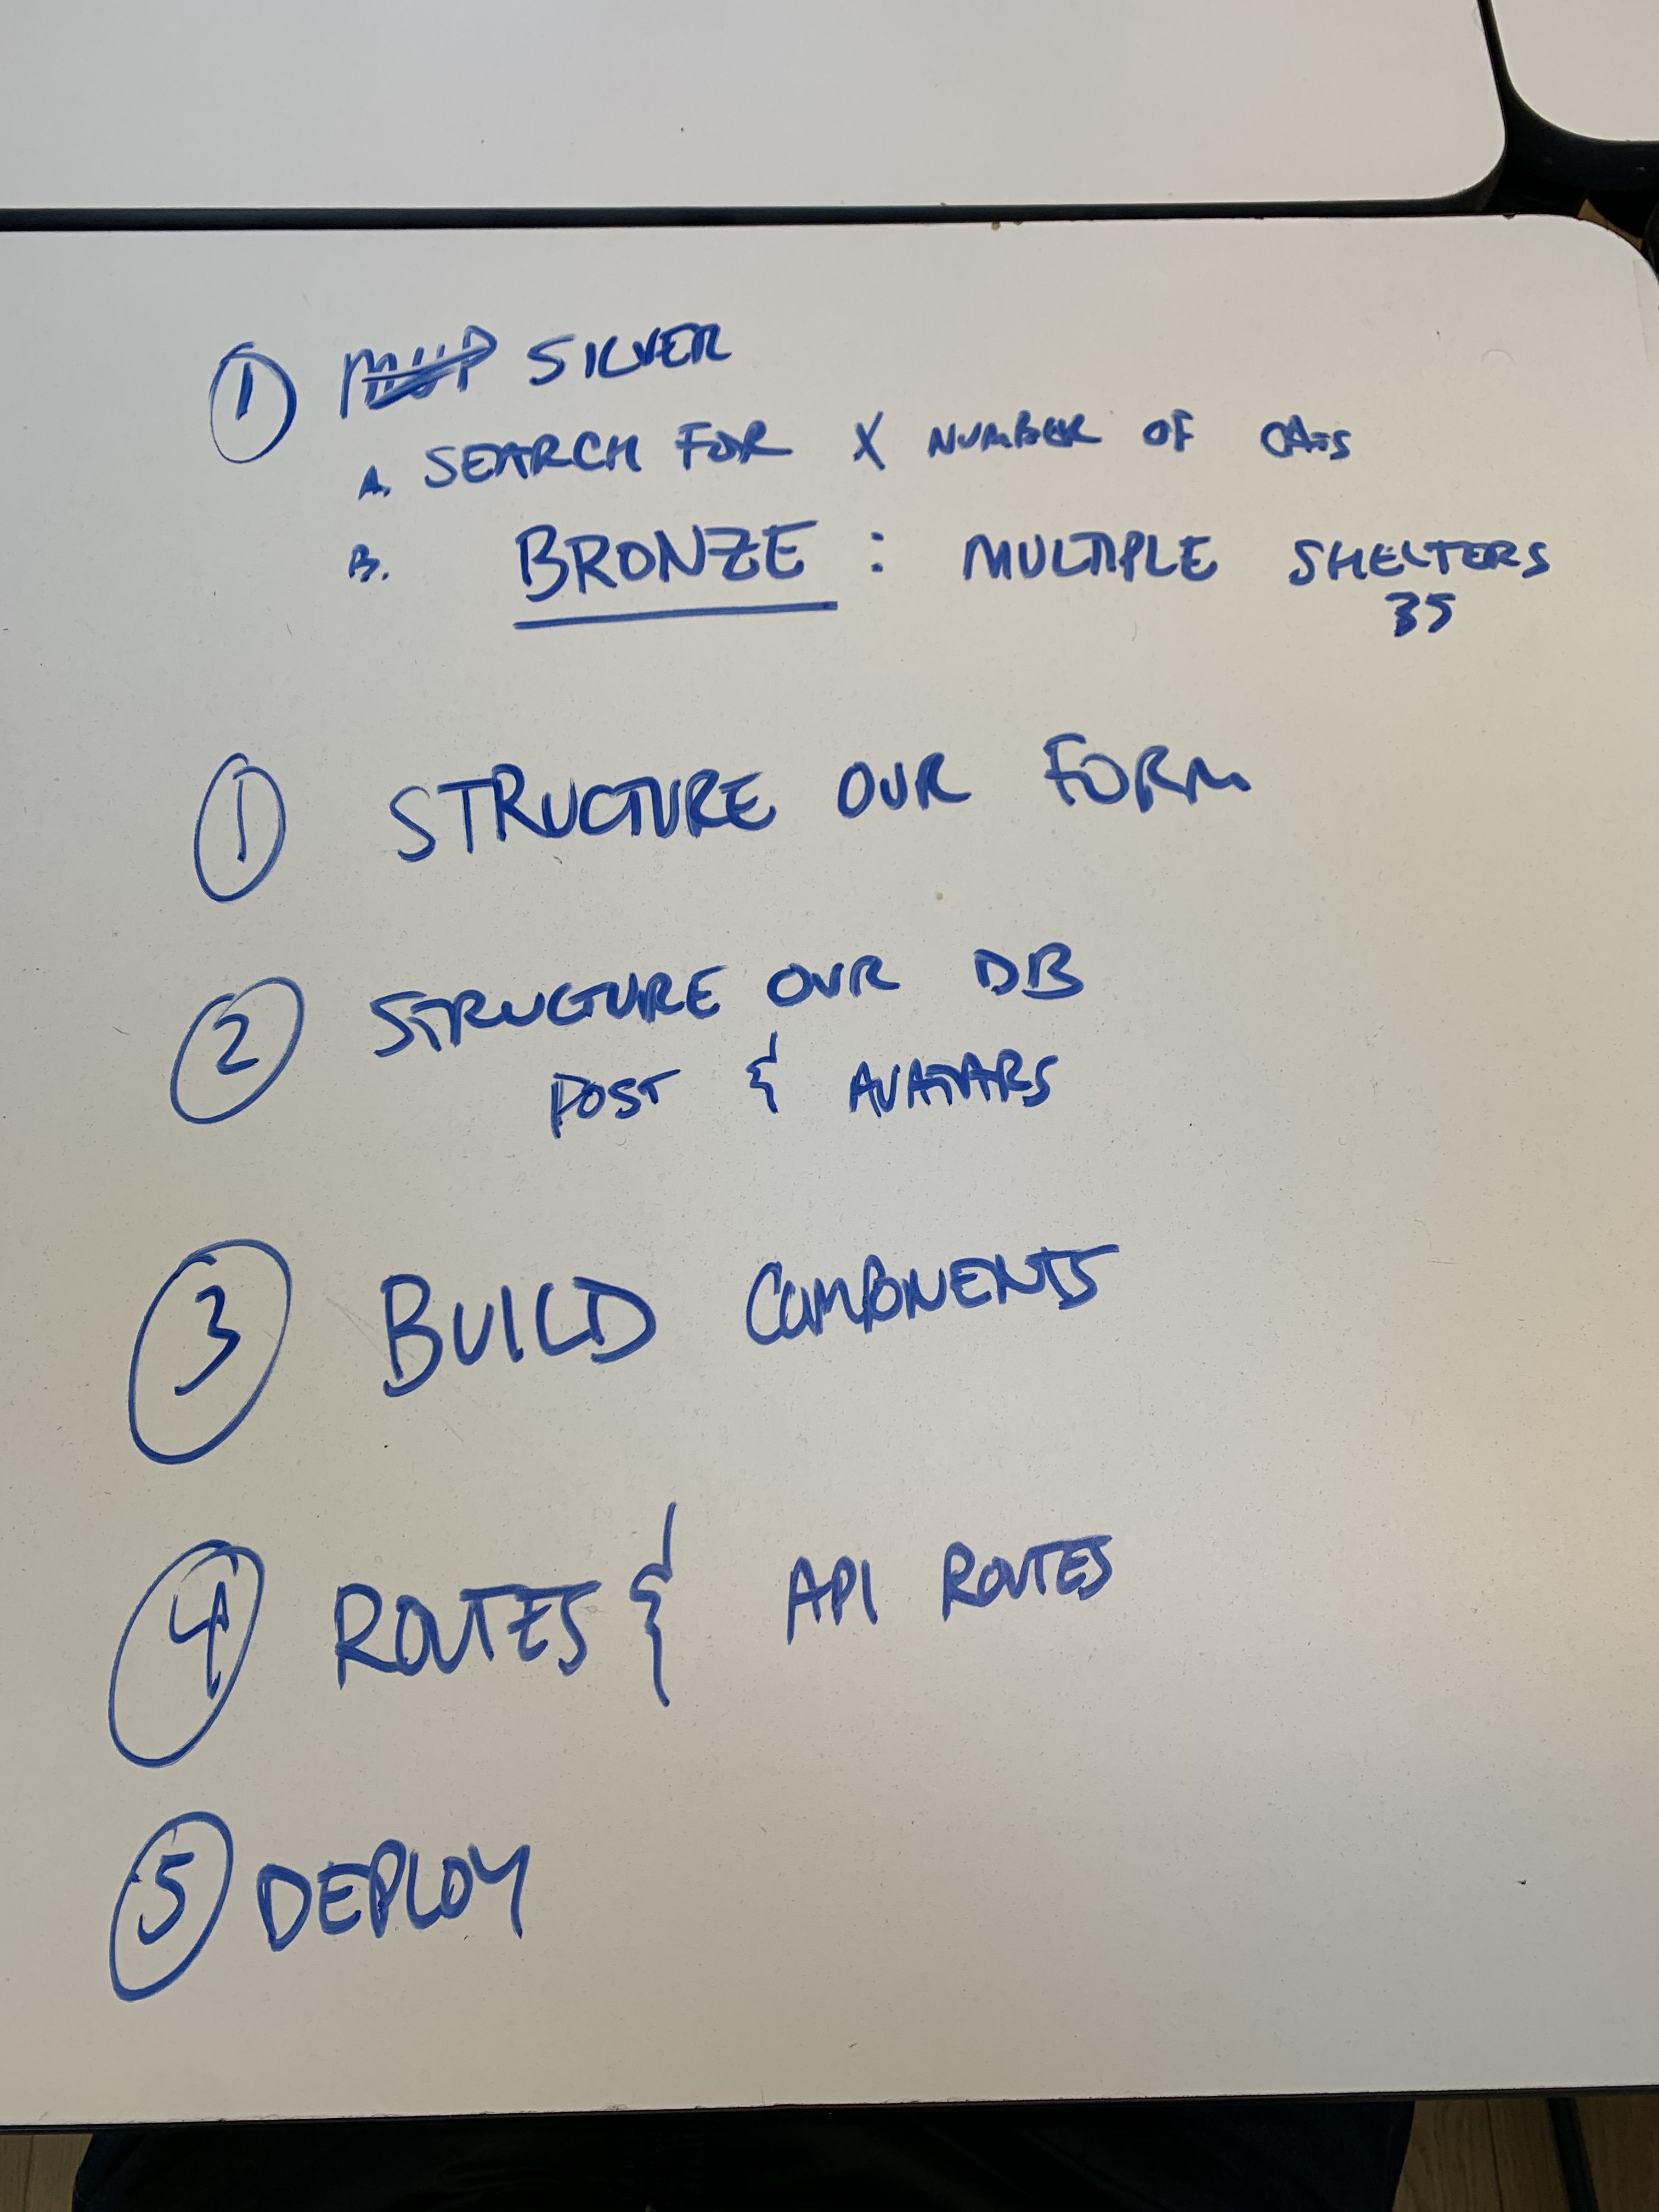 ① SILVER
A. SEARCH FOR X NUMBER OF CATS
B. BRONZE : MULTIPLE SHELTERS
35
① STRUCTURE OUR FORM
② STRUCTURE OUR DB
POST & AVATARS
③ BUILD COMPONENTS
④ ROUTES & API ROUTES
⑤ DEPLOY